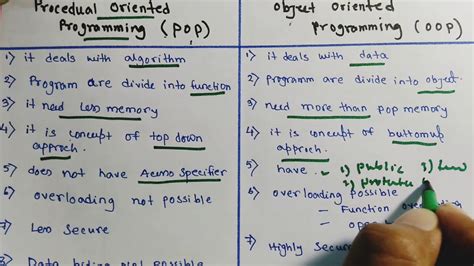 Procedual Oriented
Programming (POP)
1) it deals with algorithm
2) Program are divide into function
3) it need less memory
4) it is concept of top down
approch.
5) does not have Acems Specifier
6) overloading not possible
7) Less Secure
8) Data hiding not possible
Object Oriented
Programming (OOP)
1) it deals with data
2) Programm are divide into object.
3) need more than pop memory
4) it is concept of buttomup
approch.
5) have. 1) Public 3)
2) Protecte
6) overloading possible
- Function over
- ope
7) Highly Secure
8)